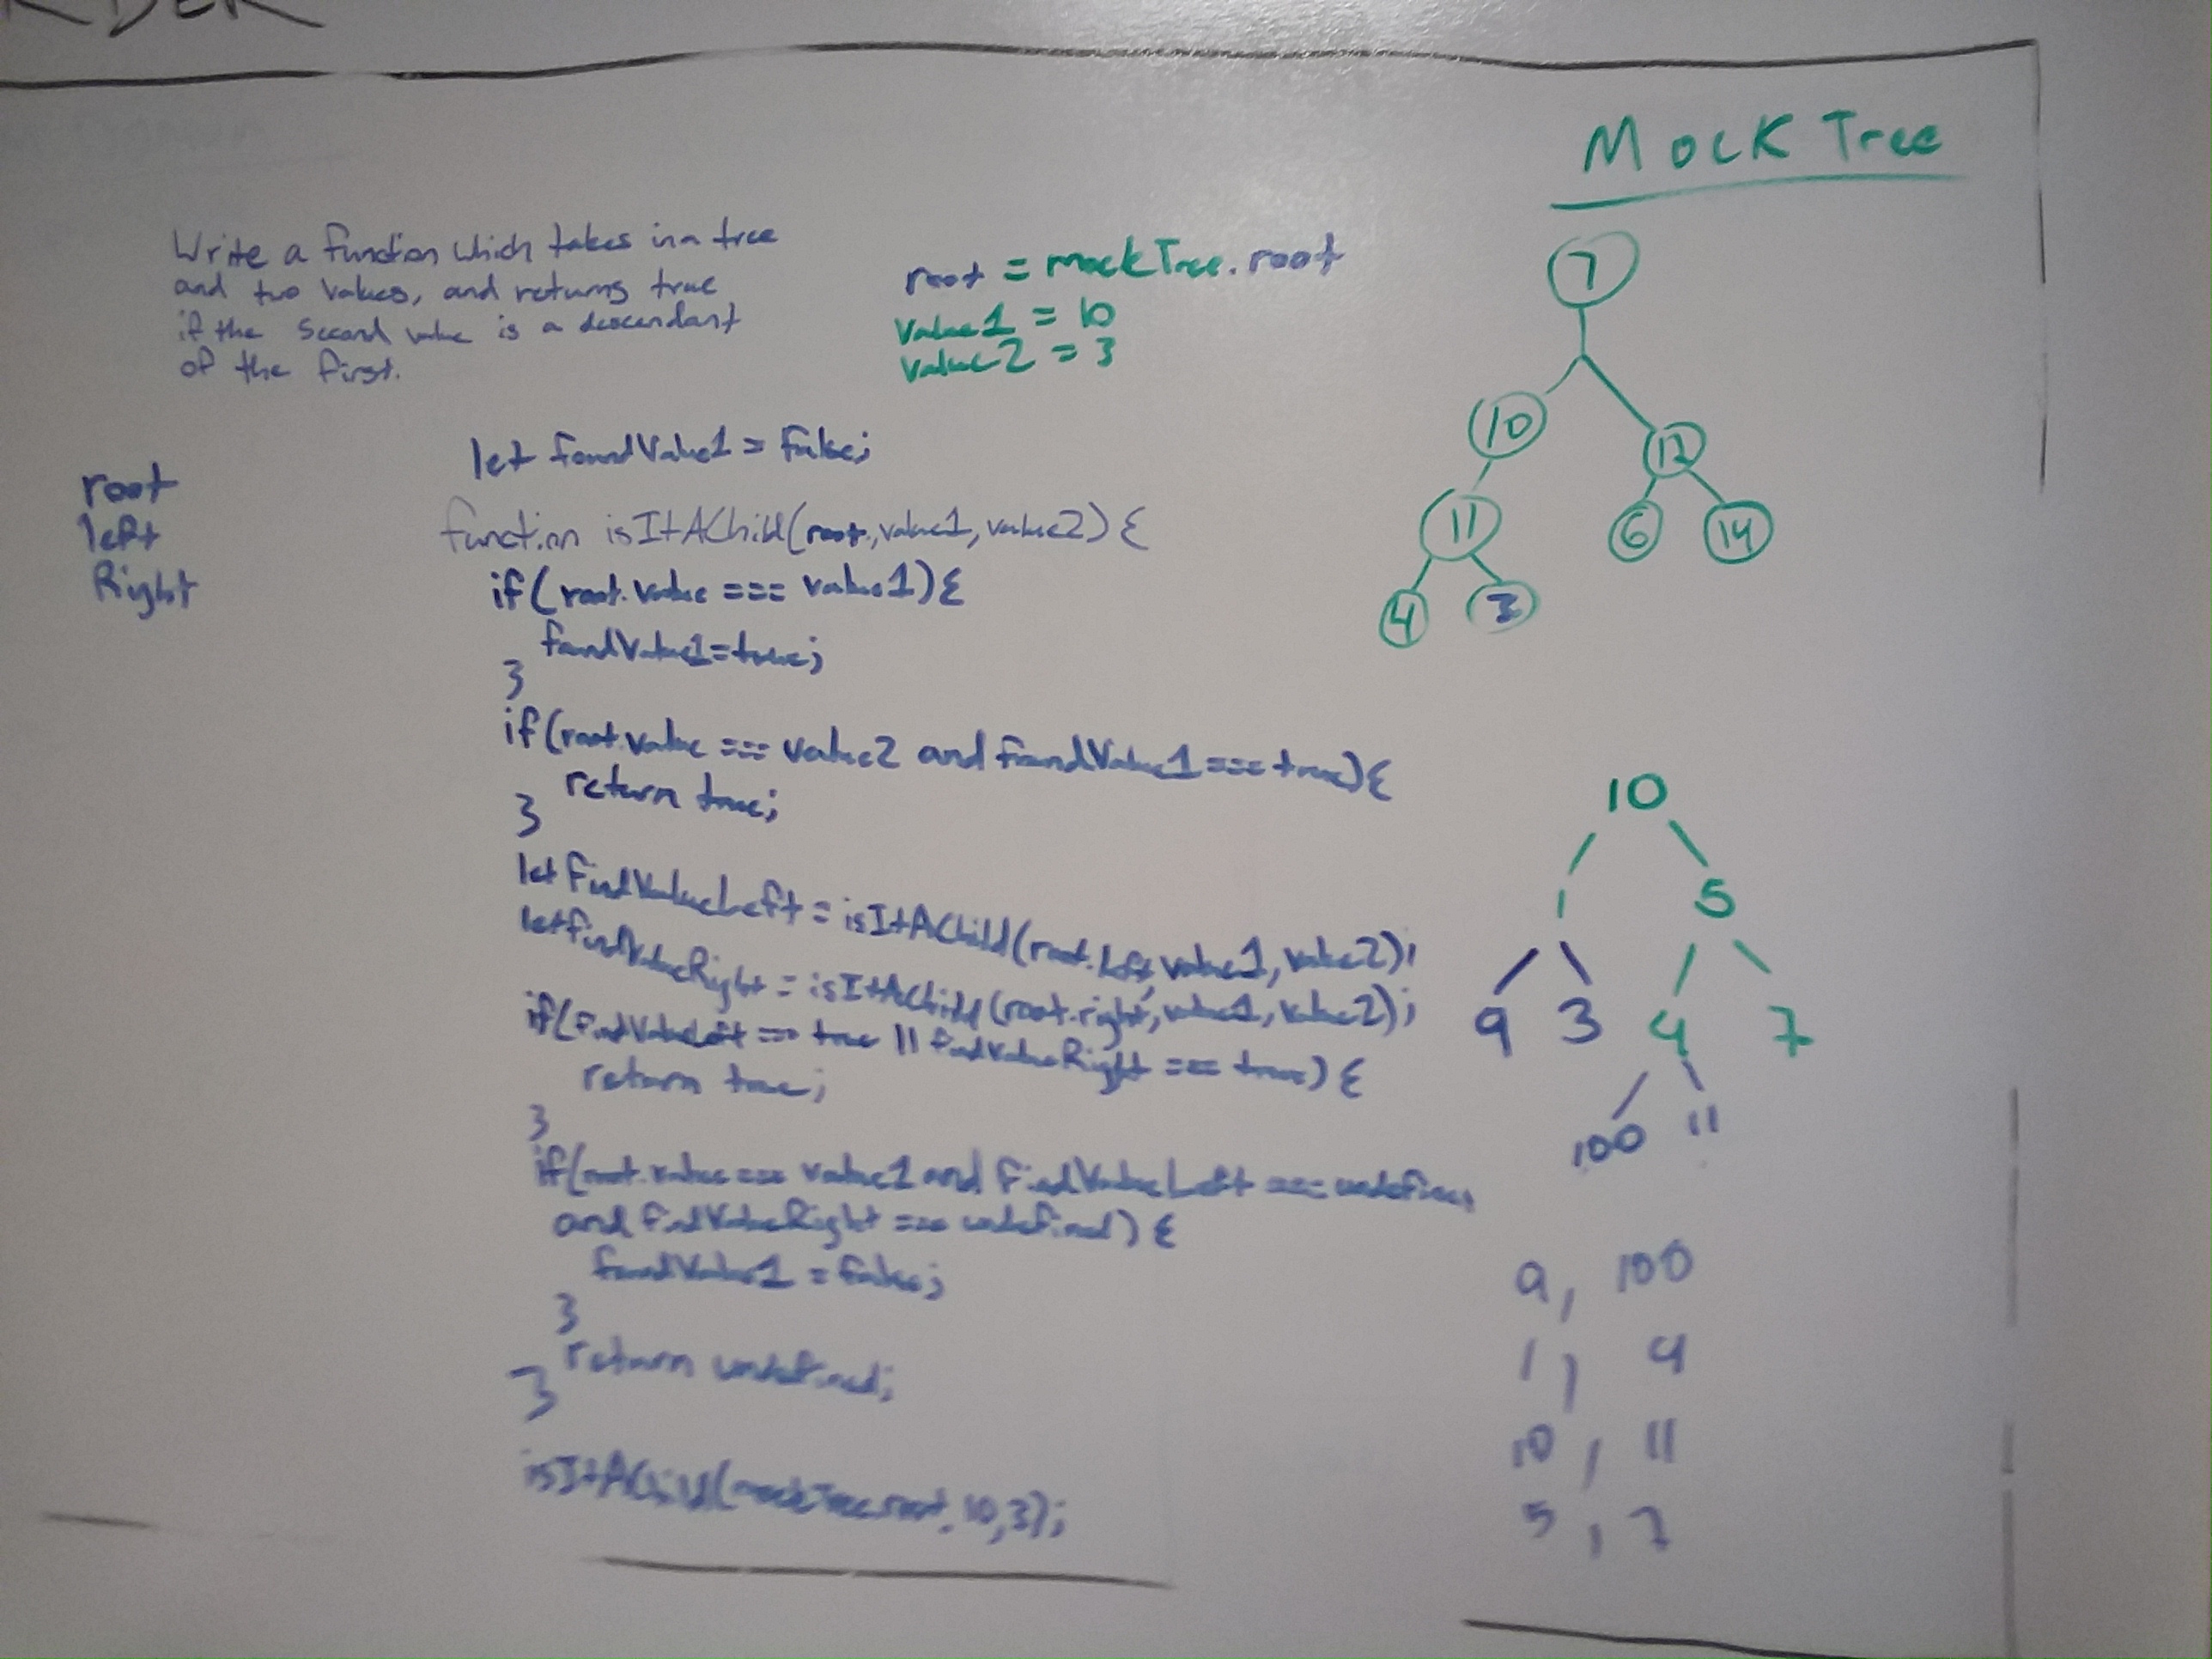 RDER
Mock Tree
Write a function which takes in a tree
and two values, and returns true
if the second value is a descendant
of the first.
root = mockTree.root
value1 = 10
value2 = 3
root
left
Right
let foundValue1 = false;
function isItAChild(root, value1, value2) {
if(root.value === value1){
foundValue1=true;
}
if(root.value === value2 and foundValue1 === true){
return true;
}
let findValueLeft = isItAChild(root.left, value1, value2);
let findValueRight = isItAChild(root.right, value1, value2);
if(findValueLeft === true || findValueRight === true) {
return true;
}
if(root.value === value1 and findValueLeft === undefined
and findValueRight === undefined) {
foundValue1 = false;
}
return undefined;
}
isItAChild(mockTree.root, 10,3);
7
10 12
11 6 14
4 3
10
1 5
9 3 4 7
100 11
9, 100
1, 4
10, 11
5, 7